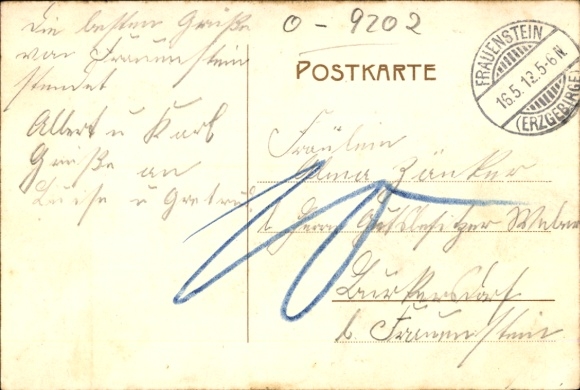 Die besten Grüße
von Frauenstein
sendet
Albert u Karl
Grüße an
Luise u Gertrud
O - 9202
POSTKARTE
FRAUENSTEIN
16.5.12.5-6N.
(ERZGEBIRGE)
Fräulein
Zänker
Herrn Gutsbesitzer Weber
Burkersdorf
b. Frauenstein